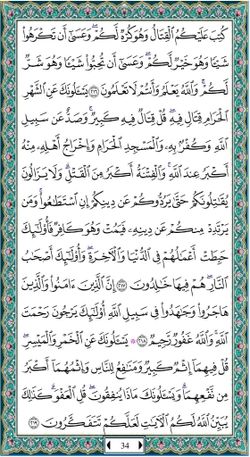 كُتِبَ عَلَيْكُمُ ٱلْقِتَالُ وَهُوَ كُرْهٌ لَّكُمْ ۖ وَعَسَىٰٓ أَن تَكْرَهُوا۟
شَيْـًٔا وَهُوَ خَيْرٌ لَّكُمْ ۖ وَعَسَىٰٓ أَن تُحِبُّوا۟ شَيْـًٔا وَهُوَ شَرٌّ
لَّكُمْ ۗ وَٱللَّهُ يَعْلَمُ وَأَنتُمْ لَا تَعْلَمُونَ ٢١٦ يَسْـَٔلُونَكَ عَنِ ٱلشَّهْرِ
ٱلْحَرَامِ قِتَالٍ فِيهِ ۖ قُلْ قِتَالٌ فِيهِ كَبِيرٌ ۖ وَصَدٌّ عَن سَبِيلِ
ٱللَّهِ وَكُفْرٌۢ بِهِۦ وَٱلْمَسْجِدِ ٱلْحَرَامِ وَإِخْرَاجُ أَهْلِهِۦ مِنْهُ
أَكْبَرُ عِندَ ٱللَّهِ ۚ وَٱلْفِتْنَةُ أَكْبَرُ مِنَ ٱلْقَتْلِ ۗ وَلَا يَزَالُونَ
يُقَـٰتِلُونَكُمْ حَتَّىٰ يَرُدُّوكُمْ عَن دِينِكُمْ إِنِ ٱسْتَطَـٰعُوا۟ ۚ وَمَن
يَرْتَدِدْ مِنكُمْ عَن دِينِهِۦ فَيَمُتْ وَهُوَ كَافِرٌ فَأُو۟لَـٰٓئِكَ
حَبِطَتْ أَعْمَـٰلُهُمْ فِى ٱلدُّنْيَا وَٱلْـَٔاخِرَةِ ۖ وَأُو۟لَـٰٓئِكَ أَصْحَـٰبُ
ٱلنَّارِ ۖ هُمْ فِيهَا خَـٰلِدُونَ ٢١٧ إِنَّ ٱلَّذِينَ ءَامَنُوا۟ وَٱلَّذِينَ
هَاجَرُوا۟ وَجَـٰهَدُوا۟ فِى سَبِيلِ ٱللَّهِ أُو۟لَـٰٓئِكَ يَرْجُونَ رَحْمَتَ
ٱللَّهِ ۚ وَٱللَّهُ غَفُورٌ رَّحِيمٌ ٢١٨ ۞ يَسْـَٔلُونَكَ عَنِ ٱلْخَمْرِ وَٱلْمَيْسِرِ ۖ
قُلْ فِيهِمَآ إِثْمٌ كَبِيرٌ وَمَنَـٰفِعُ لِلنَّاسِ وَإِثْمُهُمَآ أَكْبَرُ
مِن نَّفْعِهِمَا ۗ وَيَسْـَٔلُونَكَ مَاذَا يُنفِقُونَ قُلِ ٱلْعَفْوَ ۗ كَذَٰلِكَ
يُبَيِّنُ ٱللَّهُ لَكُمُ ٱلْـَٔايَـٰتِ لَعَلَّكُمْ تَتَفَكَّرُونَ ٢١٩
34